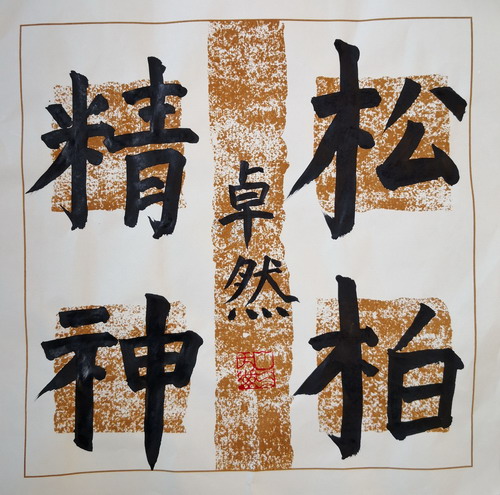 松柏
精神
卓然